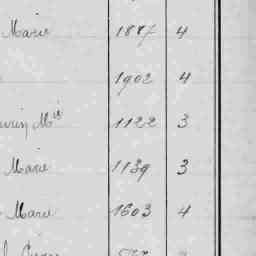 Marie 1887 4
1902 4
Mie 1122 3
Marie 1139 3
Marie 1603 4